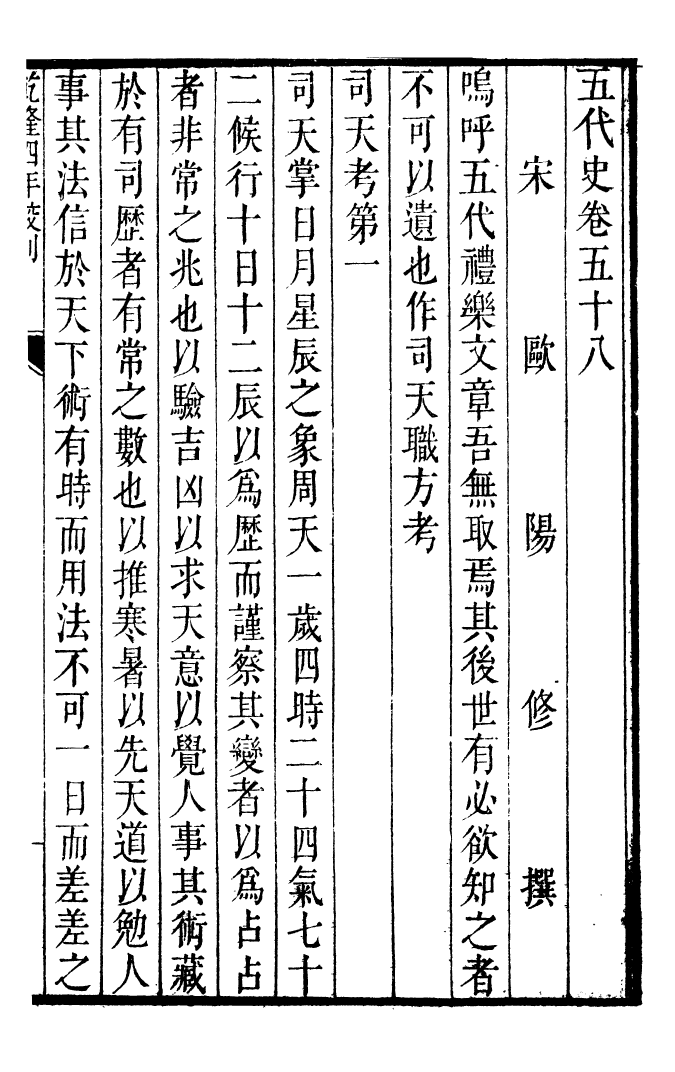 五代史卷五十八
宋歐陽修撰
嗚呼五代禮樂文章吾無取焉其後世有必欲知之者
不可以遺也作司天職方考
司天考第一
司天掌日月星辰之象周天一歲四時二十四氣七十
二候行十日十二辰以爲歷而謹察其變者以爲占占
者非常之兆也以驗吉凶以求天意以覺人事其術藏
於有司歷者有常之數也以推寒暑以先天道以勉人
事其法信於天下術有時而用法不可一日而差差之
乾隆四年校刊